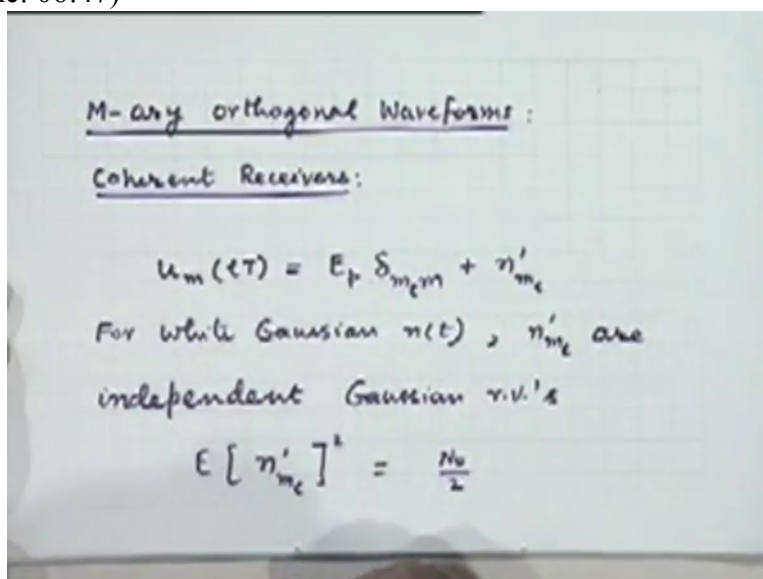 M-ary orthogonal Waveforms :
Coherent Receivers :
u_m(ℓT) = E_p δ_{m_ℓ m} + n'_{m_ℓ}
For white Gaussian n(t) , n'_{m_ℓ} are
independent Gaussian r.v.'s
E [ n'_{m_ℓ} ]² = N₀/2